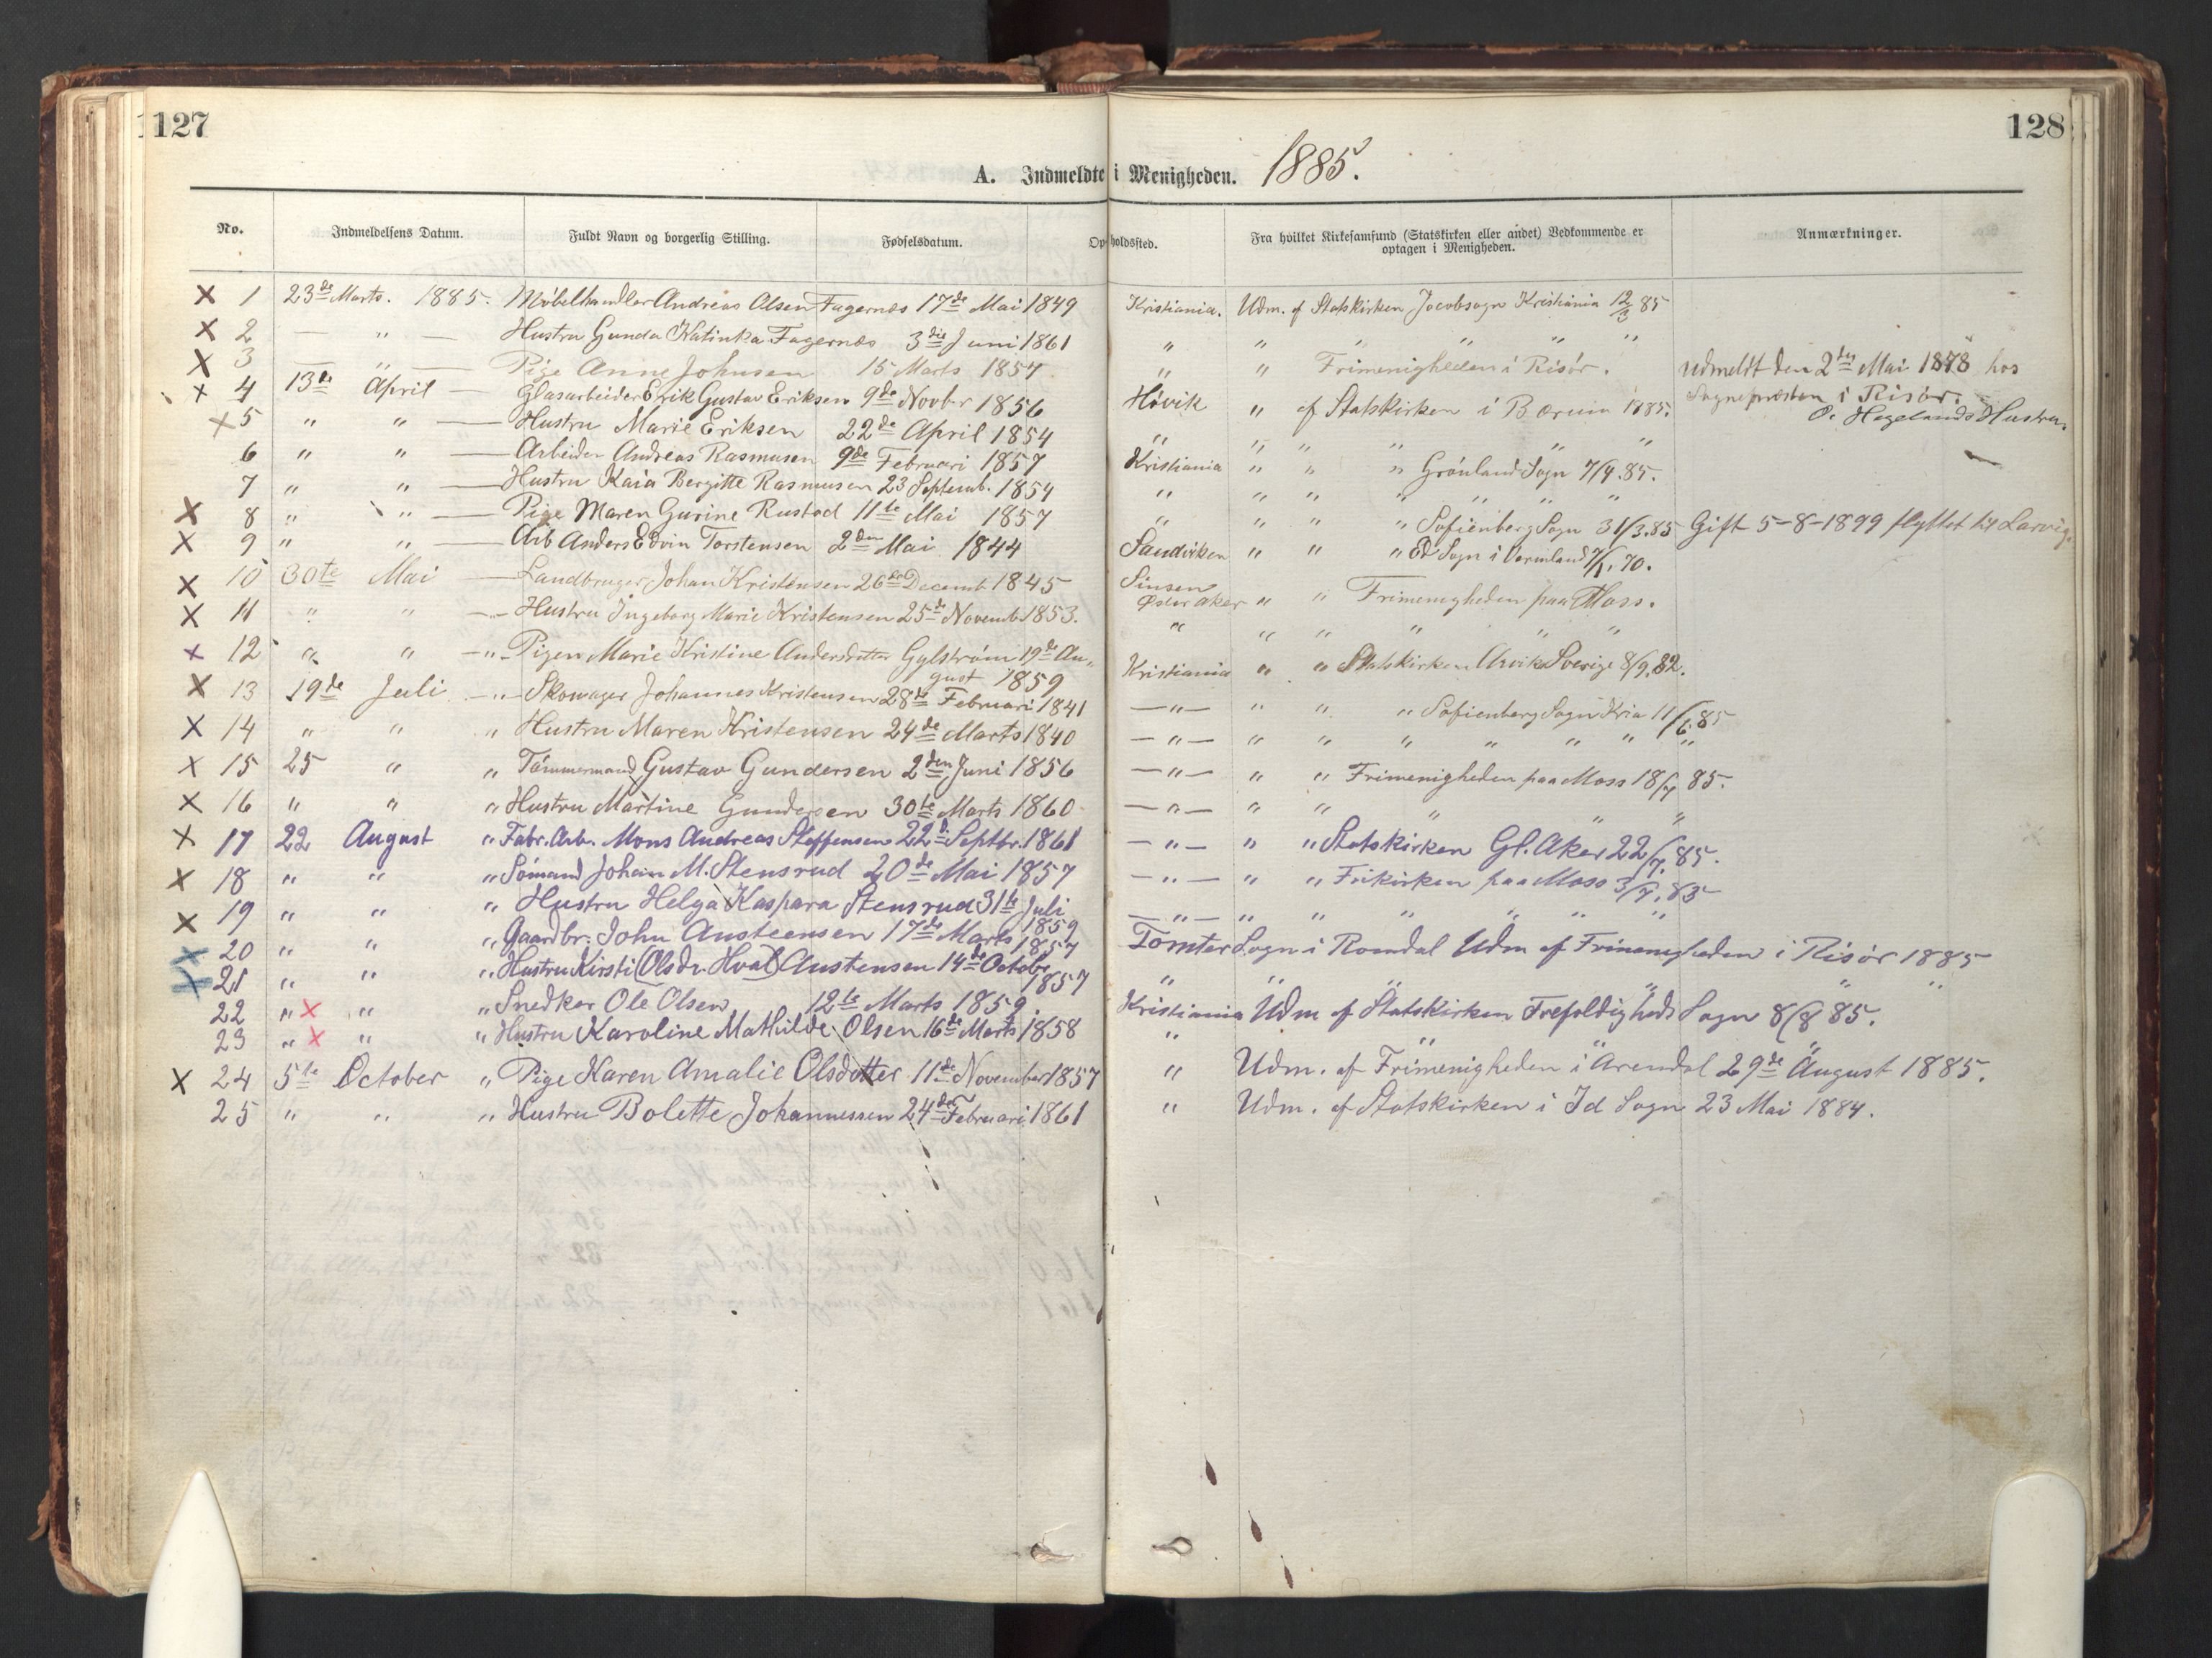 127
128
A. Indmeldte i Menigheden. 1885.
No. Indmeldelsens Datum. Fuldt Navn og borgerlig Stilling. Fødselsdatum. Opholdssted. Fra hvilket Kirkesamfund (Statskirken eller andet) Vedkommende er optagen i Menigheden. Anmærkninger.
X 1 23de Marts. 1885. Møbelhandler Andreas Olsen Fagernæs 17de Mai 1849 Kristiania. Udm. af Statskirken Jacobsogn Kristiania 12/3 85
X 2 — " — Hustru Gunda Katinka Fagernæs 3die Juni 1861 " " " " " "
X 3 — " — Pige Anne Johnsen 15 Marts 1857 " " Frimenigheden i Risør. udmeldt den 2den Mai 1878 hos Sognepresten i Risør. O. Hegelands Hustru.
X 4 13de April — Glasarbeider Erik Gustav Eriksen 9de Novbr 1856 Høvik " af Statskirken i Bærum 1885.
X 5 " " — Hustru Marie Eriksen 22de April 1854 " " " " " "
6 " " — Arbeider Andreas Rasmusen 9de Februari 1857 Kristiania " " " Grønland Sogn 7/4.85.
7 " " — Hustru Kaia Bergitte Rasmusen 23 Septemb. 1854 " " " " " " "
X 8 " " — Pige Maren Gurine Rustad 11te Mai 1857 " " " " Sofienberg Sogn 31/3.85 Gift 5-8-1899 flyttet til Larvig.
X 9 " " — Arb Anders Edvin Torstensen 2den Mai 1844 Sandviken " " " Ed Sogn i Vermland 7/1. 70.
X 10 30te Mai — Landbruger Johan Kristensen 26de Decemb 1845 Sinsen Øster Aker " " Frimenigheden paa Moss.
X 11 " " — Hustru Ingeborg Marie Kristensen 25de Novemb 1853. " " " " " "
X 12 " " — " — Pigen Marie Kristine Andersdatter Gylstrøm 19de August 1859 Kristiania " " Statskirken Arvika Sverige 8/9.82.
X 13 19de Juli — " — Skomager Johannes Kristensen 28de Februari 1841 — " — " " " Sofienberg Sogn Kria 11/6.85
X 14 " " " Hustru Maren Kristensen 24de Marts 1840 — " — " " " " " " "
X 15 25 " " Tømmermand Gustav Gundersen 2den Juni 1856 — " — " " Frimenigheden paa Moss 18/7 85.
X 16 " " " Hustru Martine Gundersen 30te Marts 1860 — " — " " " " "
X 17 22 August " Fabr. Arb. Mons Andreas Steffensen 22de Septbr. 1861 — " — " " Statskirken Gl. Aker 22/7. 85.
X 18 " " " Sømand Johan M. Stensrud 20de Mai 1857 — " — " " Frikirken paa Moss 3/7. 83
X 19 " " " Hustru Helga Kaspara Stensrud 31te Juli 1859 — " — " " " " " "
X 20 " " " Gaardbr. John Austeensen 17de Marts 1857 Tomter Sogn i Romdal Udm af Frimenigheden i Risør 1885
X 21 " " " Hustru Kirsti (Olsdr. Hval) Austensen 14de Octobr 1857 " " " " " "
22 " X " " Snedker Ole Olsen 12te Marts 1859. Kristiania Udm af Statskirken Trefoldigheds Sogn 8/8 85.
23 " X " " Hustru Karoline Mathilde Olsen 16de Marts 1858 " " "
X 24 5te October " Pige Karen Amalie Olsdatter 11de November 1857 " Udm. af Frimenigheden i Arendal 29de August 1885.
25 " " " Hustru Bolette Johannessen 24de Februari 1861 " Udm. af Statskirken i Id Sogn 23 Mai 1884.